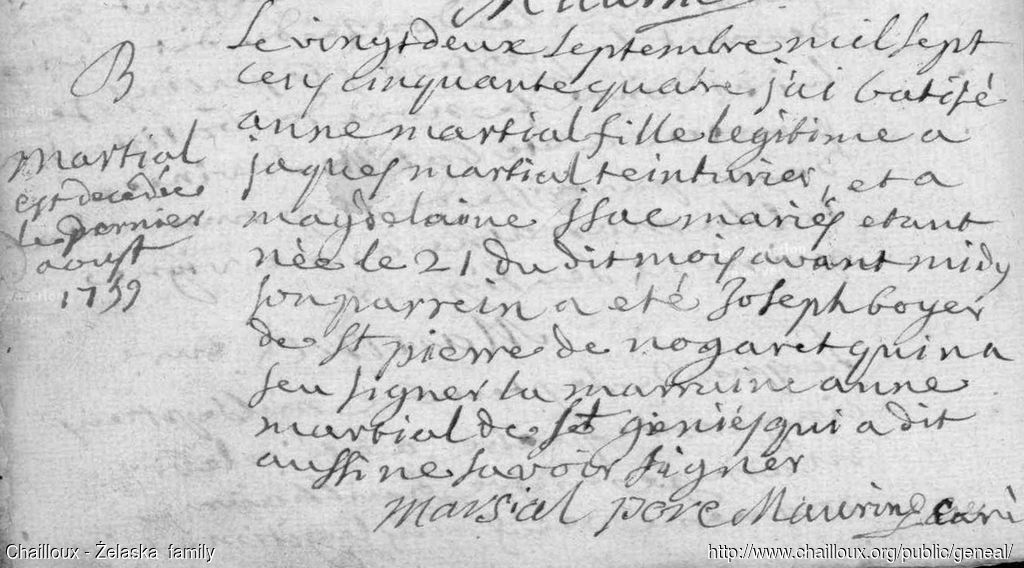 B
martial
est decedée
le dernier
aoust
1759
Le vingt deux septembre mil sept
cens cinquante quatre j'ai batisé
anne martial fille legitime a
jaques martial teinturier, et a
magdelaine Isac mariés etant
née le 21 du dit mois avant midy
son parrein a eté Joseph boyer
de St pierre de nogaret qui na
seu signer la marraine anne
martial de St geniés qui a dit
aussi ne savoir signer
marsial pere Maurin curé
Chailloux - Želaska family
http://www.chailloux.org/public/geneal/